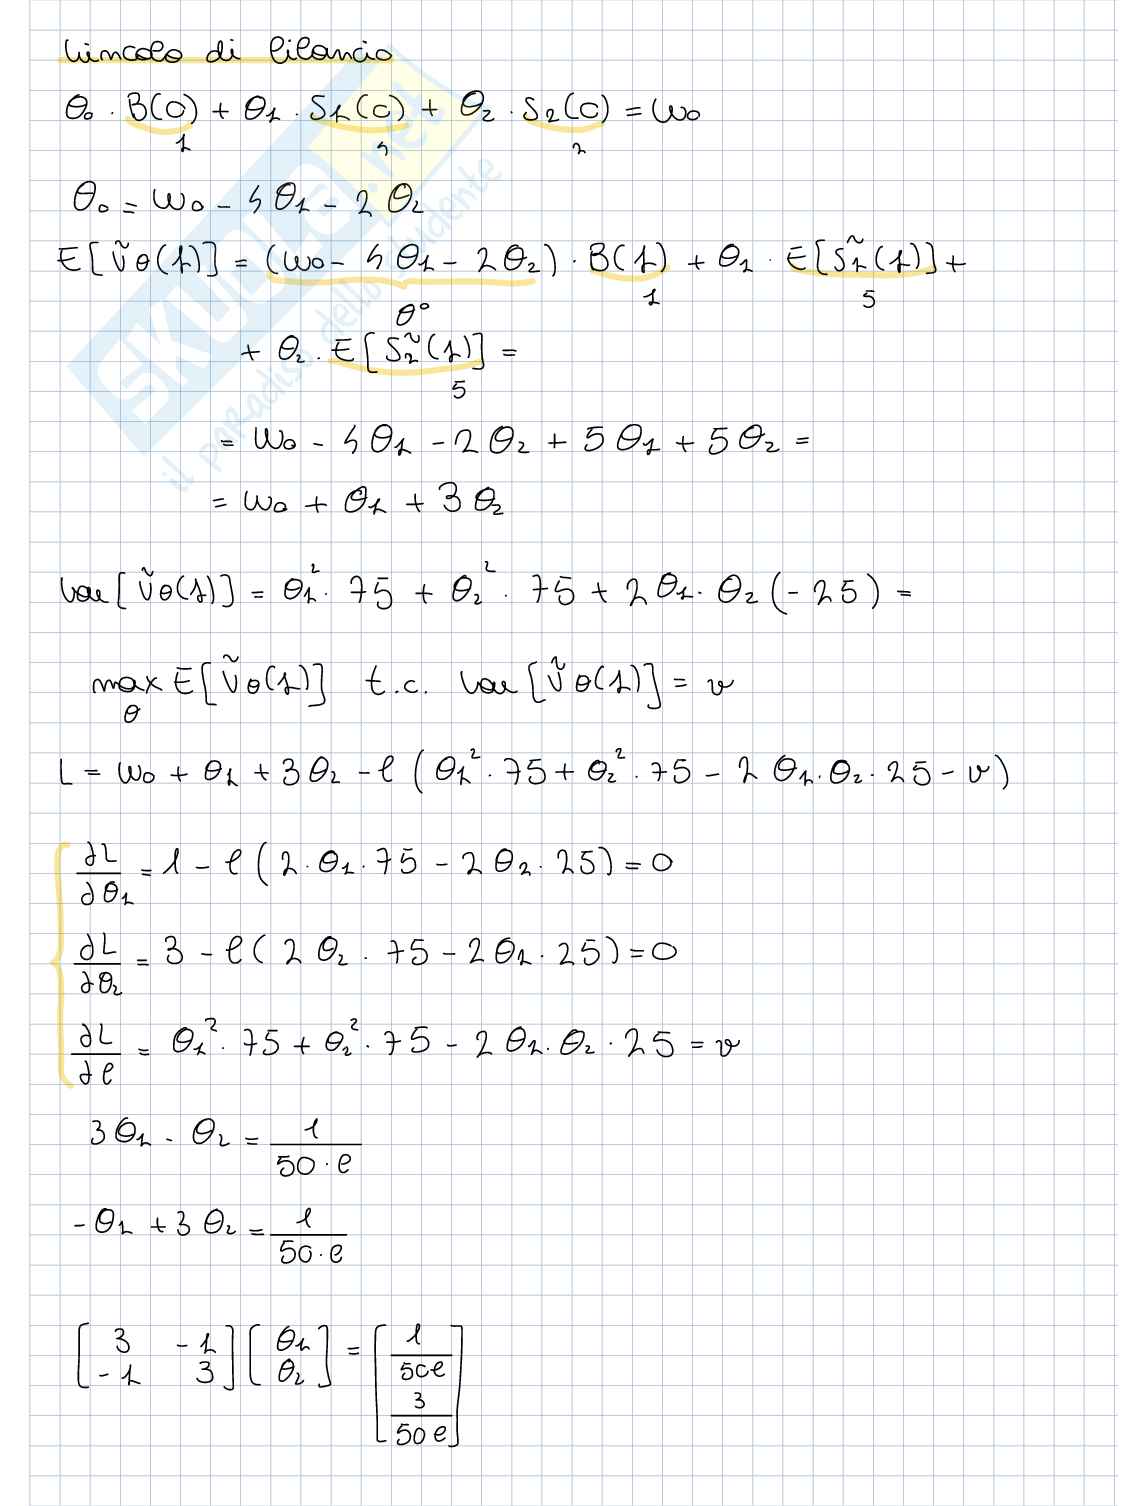 Vincolo di bilancio
θ₀ · B(0) + θ₁ · S₁(0) + θ₂ · S₂(0) = w₀
1 4 2
θ₀ = w₀ - 4θ₁ - 2θ₂
E[Ṽθ(1)] = (w₀ - 4θ₁ - 2θ₂) · B(1) + θ₁ · E[S̃₁(1)] +
θ⁰ 1 5
+ θ₂ · E[S̃₂(1)] =
5
= w₀ - 4θ₁ - 2θ₂ + 5θ₁ + 5θ₂ =
= w₀ + θ₁ + 3θ₂
Var[Ṽθ(1)] = θ₁² · 75 + θ₂² · 75 + 2θ₁ · θ₂(-25) =
max E[Ṽθ(1)] t.c. Var[Ṽθ(1)] = v
θ
L = w₀ + θ₁ + 3θ₂ - l (θ₁² · 75 + θ₂² · 75 - 2θ₁ · θ₂ · 25 - v)
∂L/∂θ₁ = 1 - l (2 · θ₁ · 75 - 2θ₂ · 25) = 0
∂L/∂θ₂ = 3 - l (2θ₂ · 75 - 2θ₁ · 25) = 0
∂L/∂l = θ₁² · 75 + θ₂² · 75 - 2θ₁ · θ₂ · 25 = v
3θ₁ - θ₂ = 1/50·l
-θ₁ + 3θ₂ = 1/50·l
[3 -1; -1 3] [θ₁; θ₂] = [1/50l; 3/50l]
SKUOLA.net
il paradiso dello studente